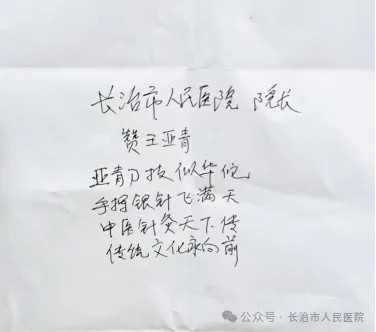 长治市人民医院 院长
赞王亚青
亚青刀技似华佗
手挥银针飞满天
中医针灸天下传
传统文化永向前
公众号·长治市人民医院